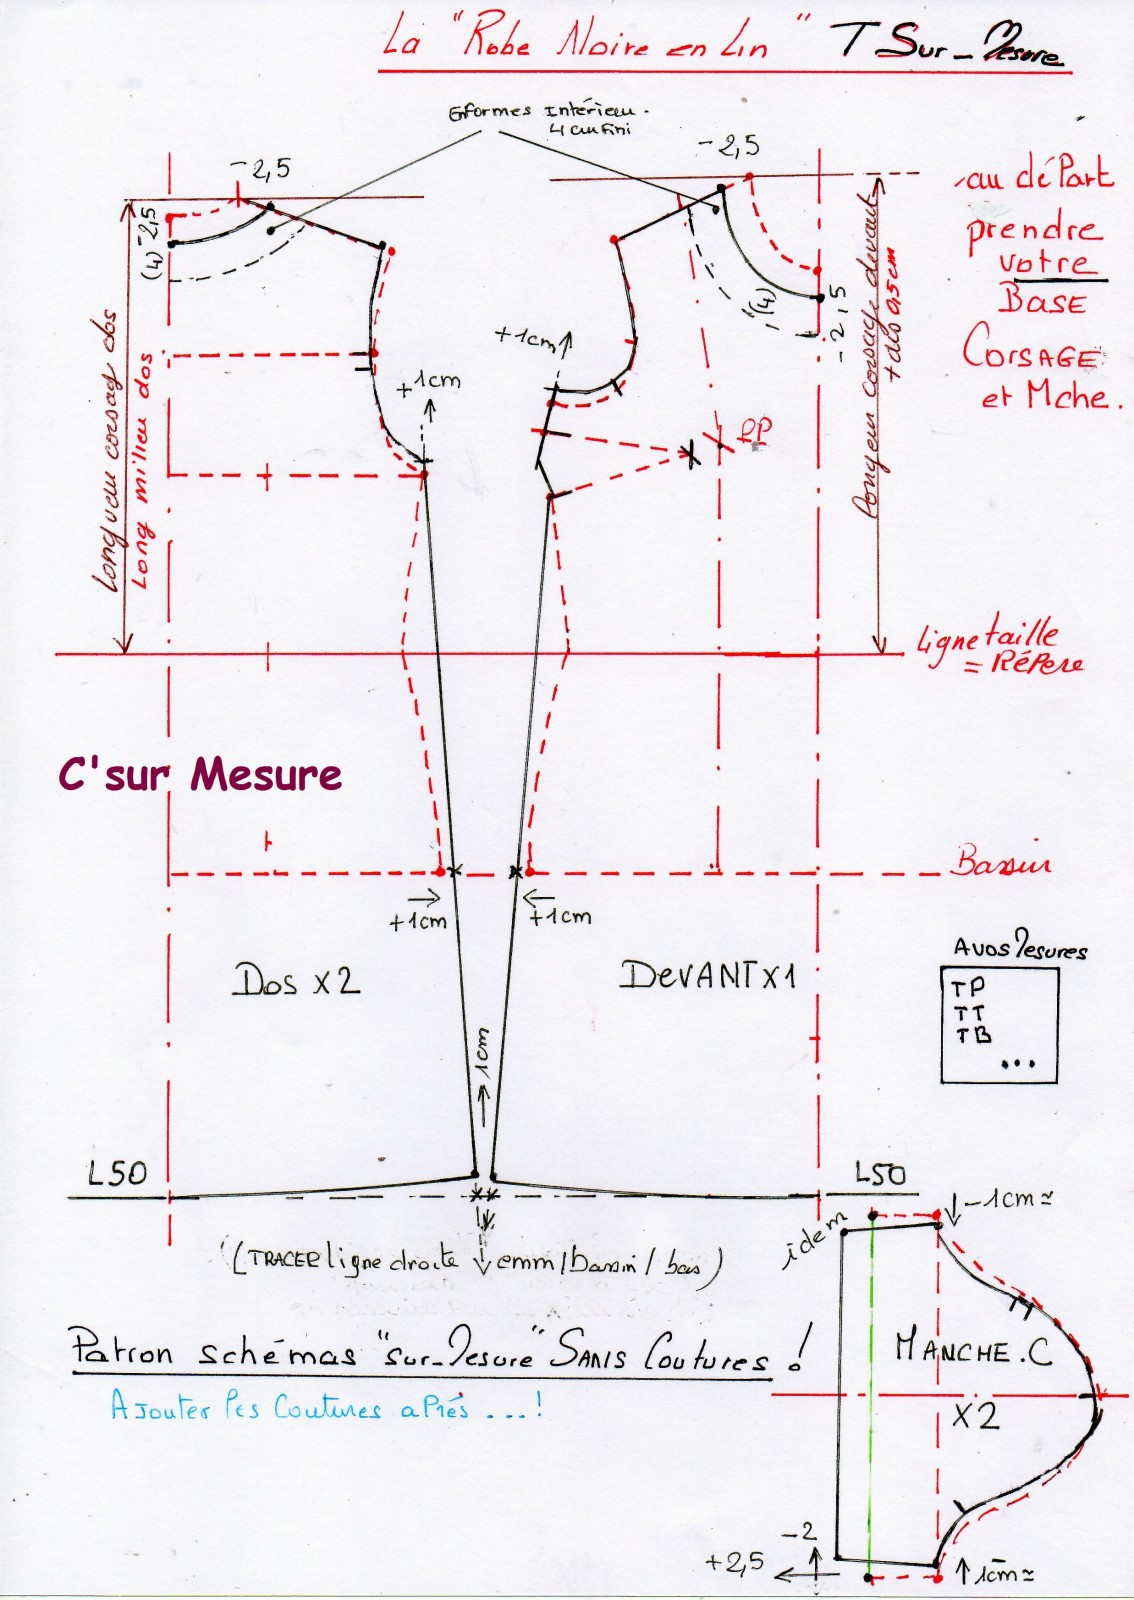 La "Robe Noire en Lin" T Sur-Mesure
Enformes Intérieur.
4 cm fini
-2,5
-2,5
-2,5
(4)
(4)
-2,5
au déPart
prendre
votre
BASE
CORSAGE
et Mche.
Longueur corsage dos
Long milieu dos
Longueur corsage devant
+ dos 0,5cm
+1cm
+1cm
PP
Ligne taille
= RéPere
C'sur Mesure
Bassin
+1cm
+1cm
Dos x2
DeVANT x1
A vos Mesures
TP
TT
TB
...
1cm
L50
L50
(TRACER ligne droite emm/bassin/bas)
idem
-1cm≃
MANCHE.C
X2
Patron schémas "sur-Mesure" SANS Coutures!
AJouter les Coutures aPrés...!
-2
+2,5
1cm≃